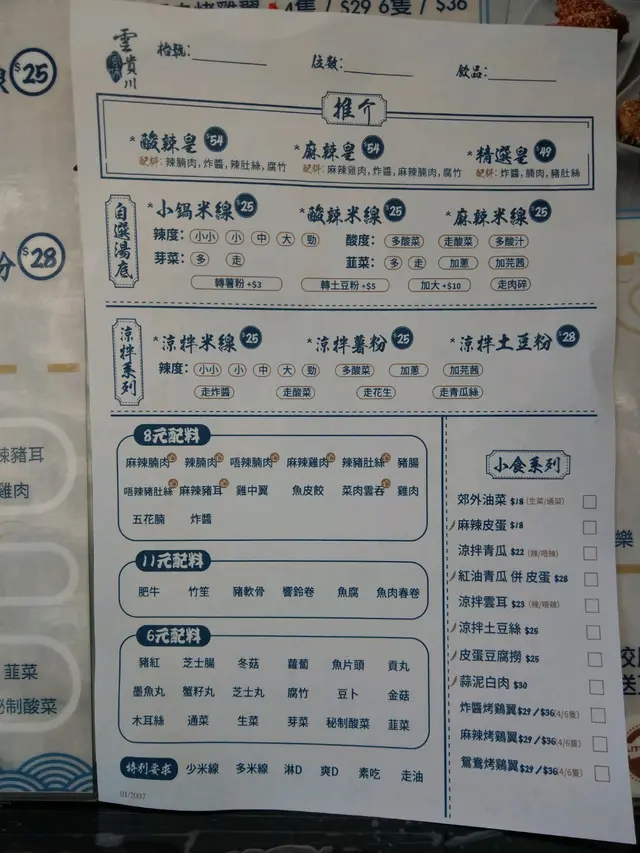 烤雞翼 4隻 / $29 6隻 / $36
雲貴川
枱號:
位數:
飲品:
推介
*酸辣皇 $54
*麻辣皇 $54
*精選皇 $49
配料: 辣腩肉,炸醬,辣肚絲,腐竹
配料: 麻辣雞肉,炸醬,麻辣腩肉,腐竹
配料: 炸醬,腩肉,豬肚絲
自選湯底
*小鍋米線 $25
*酸辣米線 $25
*麻辣米線 $25
辣度: 小小 小 中 大 勁
酸度: 多酸菜 走酸菜 多酸汁
芽菜: 多 走
韮菜: 多 走 加蔥 加芫茜
轉薯粉 +$3 轉土豆粉 +$5 加大 +$10 走肉碎
涼拌系列
*涼拌米線 $25
*涼拌薯粉 $25
*涼拌土豆粉 $28
辣度: 小小 小 中 大 勁 多酸菜 加蔥 加芫茜
走炸醬 走酸菜 走花生 走青瓜絲
8元配料
麻辣腩肉 辣腩肉 唔辣腩肉 麻辣雞肉 辣豬肚絲 豬腸
唔辣豬肚絲 麻辣豬耳 雞中翼 魚皮餃 菜肉雲吞 雞肉
五花腩 炸醬
11元配料
肥牛 竹笙 豬軟骨 響鈴卷 魚腐 魚肉春卷
6元配料
豬紅 芝士腸 冬菇 蘿蔔 魚片頭 貢丸
墨魚丸 蟹籽丸 芝士丸 腐竹 豆卜 金菇
木耳絲 通菜 生菜 芽菜 秘制酸菜 韮菜
特別要求 少米線 多米線 淋D 爽D 素吃 走油
01/2007
小食系列
郊外油菜 $18 (生菜/通菜)
麻辣皮蛋 $18
涼拌青瓜 $22 (辣/唔辣)
紅油青瓜 併 皮蛋 $28
涼拌雲耳 $23 (辣/唔辣)
涼拌土豆絲 $25
皮蛋豆腐撈 $25
蒜泥白肉 $30
炸醬烤鷄翼 $29/$36 (4/6隻)
麻辣烤鷄翼 $29/$36 (4/6隻)
鴛鴦烤鷄翼 $29/$36 (4/6隻)
$25
$28
辣豬耳
雞肉
韮菜
秘制酸菜
樂